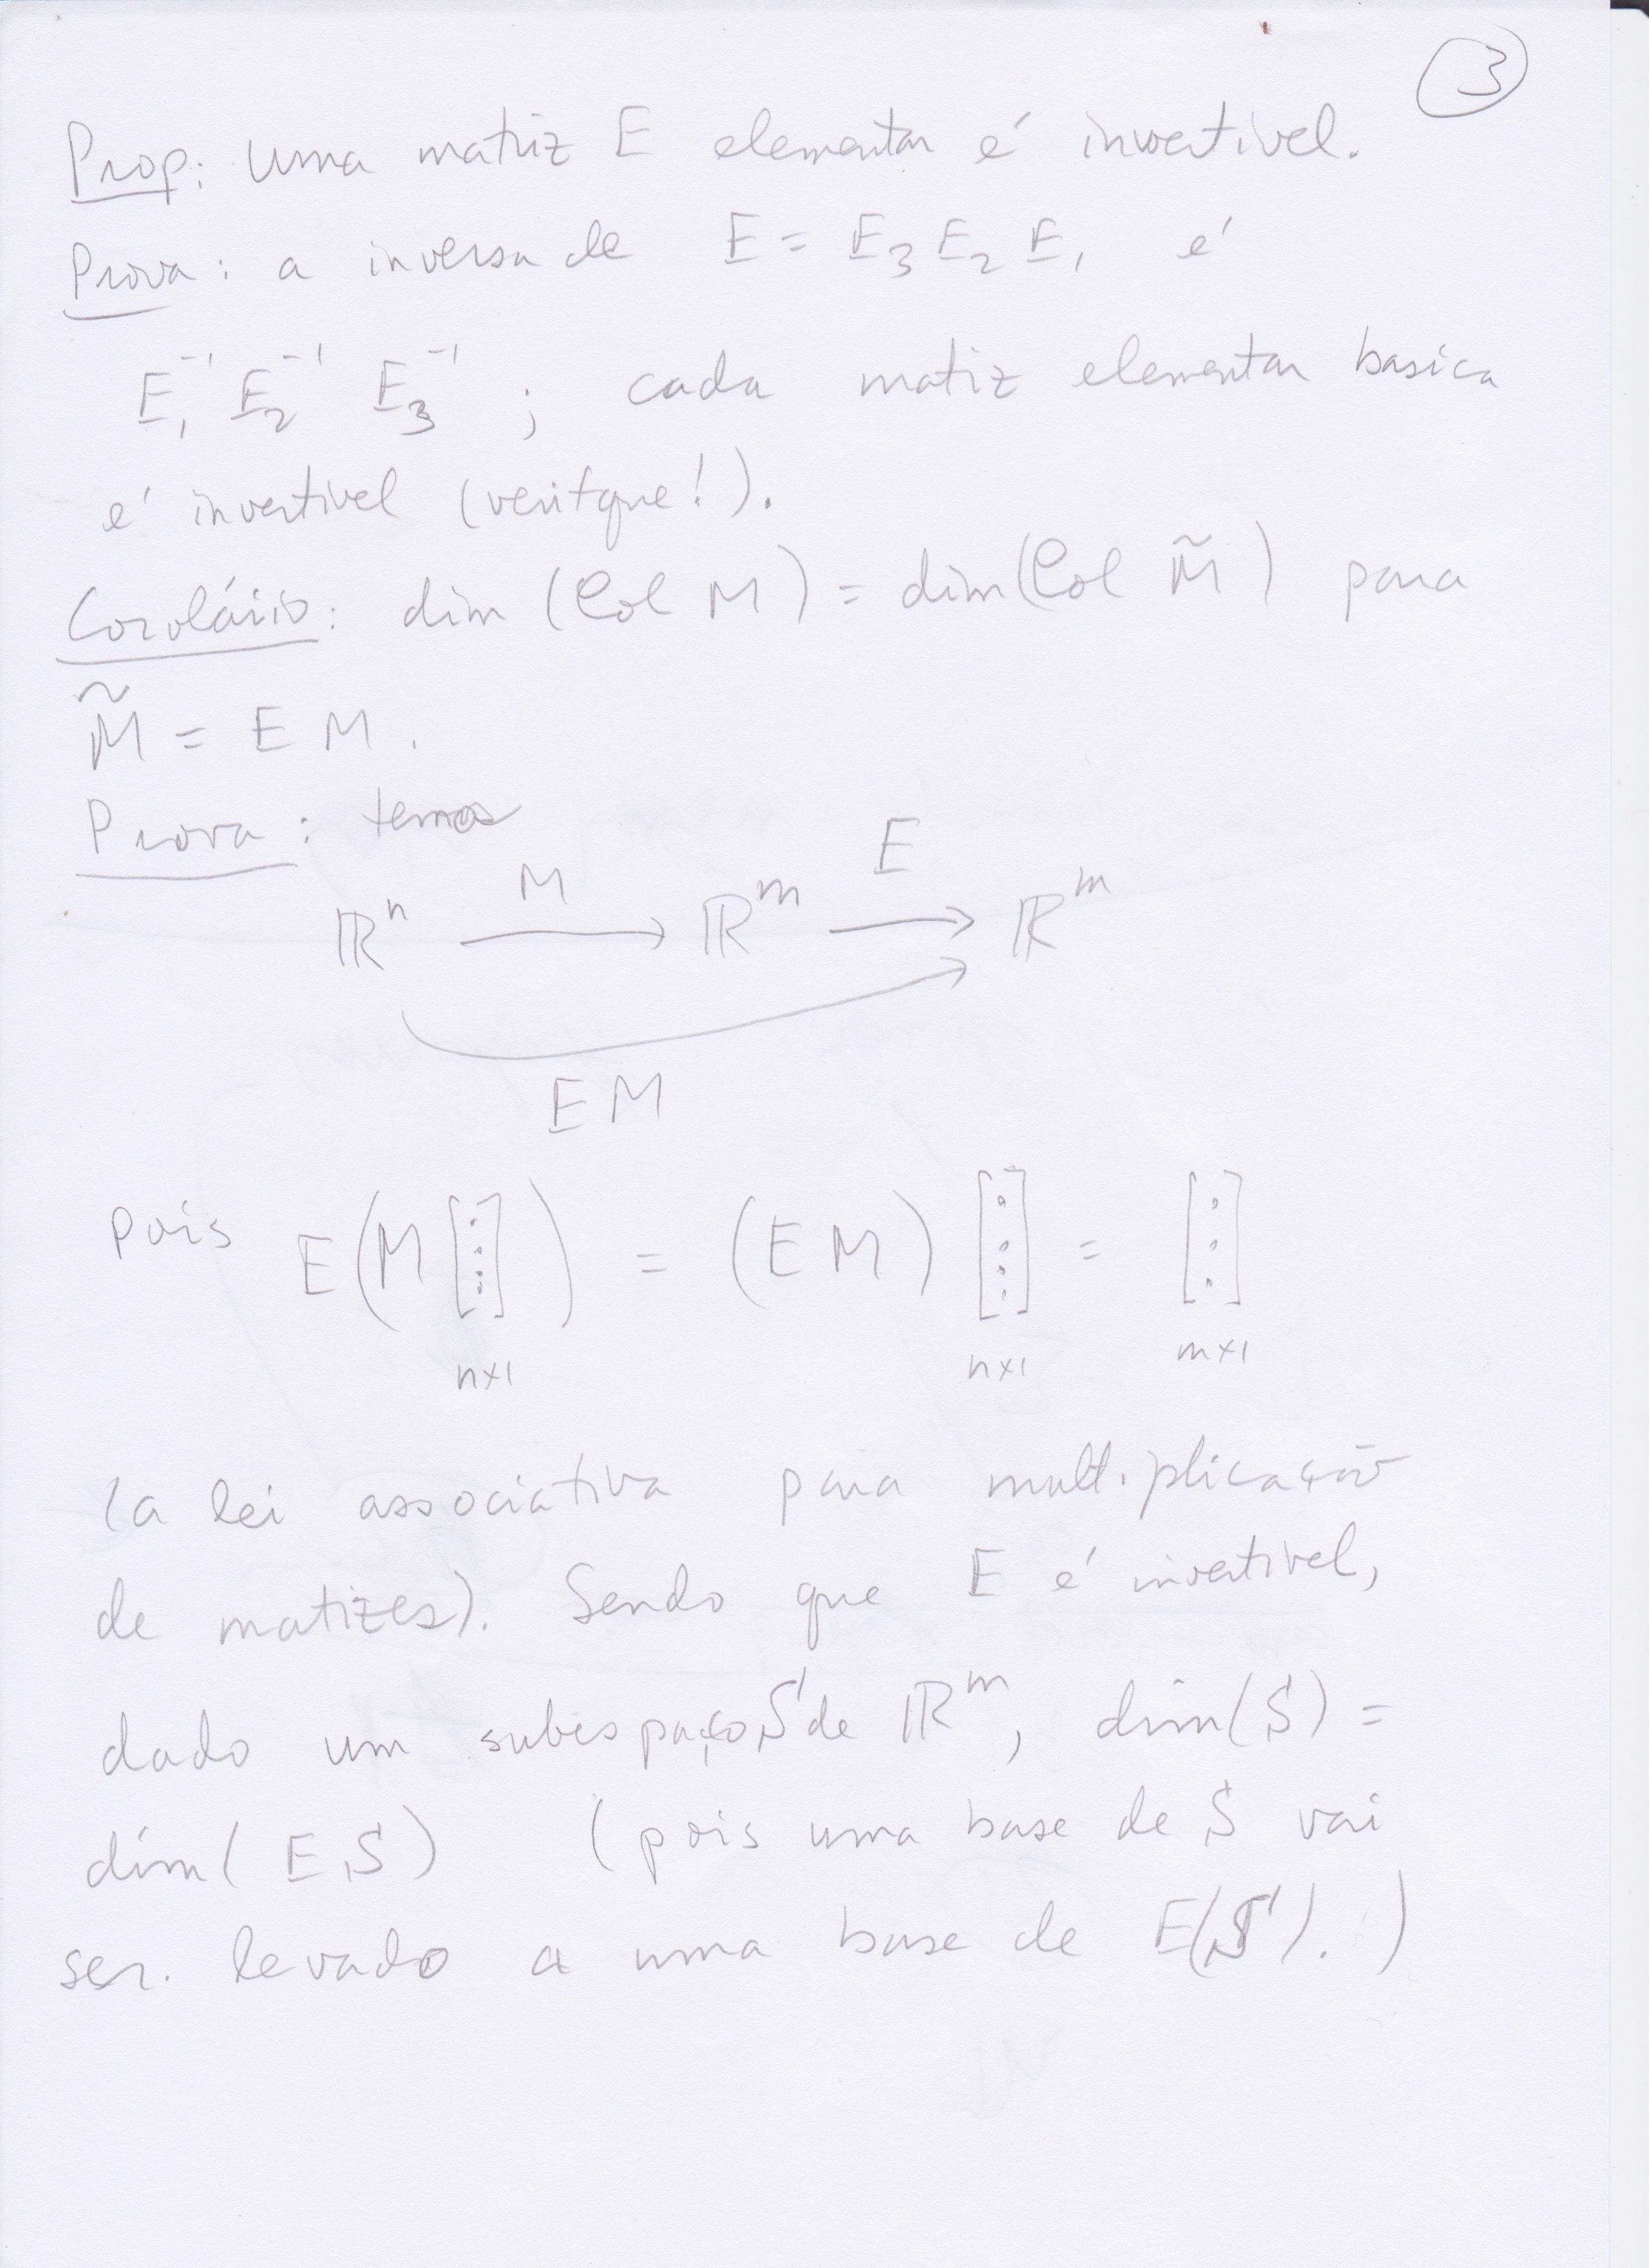 3
Prop: Uma matriz E elementar é invertivel.
Prova: a inversa de E = E₃ E₂ E₁ é
E₁⁻¹ E₂⁻¹ E₃⁻¹ ; cada matiz elementar basica
é invertivel (verifque!).
Corolário: dim (Col M) = dim (Col M̃) para
M̃ = E M.
Prova: temos
ℝⁿ —M→ ℝᵐ —E→ ℝᵐ
E M
pois E(M [⋮]) = (E M) [⋮] = [⋮]
n×1 n×1 m×1
(a lei associativa para multiplicação
de matizes). Sendo que E é invertivel,
dado um subespaço S de ℝᵐ, dim(S) =
dim(E S) (pois uma base de S vai
ser levado a uma base de E(S).)